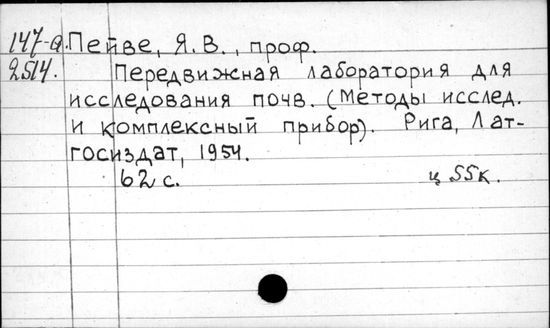 147-а. Пейве, Я. В., проф.
2514. Передвижная лаборатория для
исследования почв. (Методы исслед.
и комплексный прибор). Рига, Лат-
госиздат, 1954.
62 с. ц 55к.